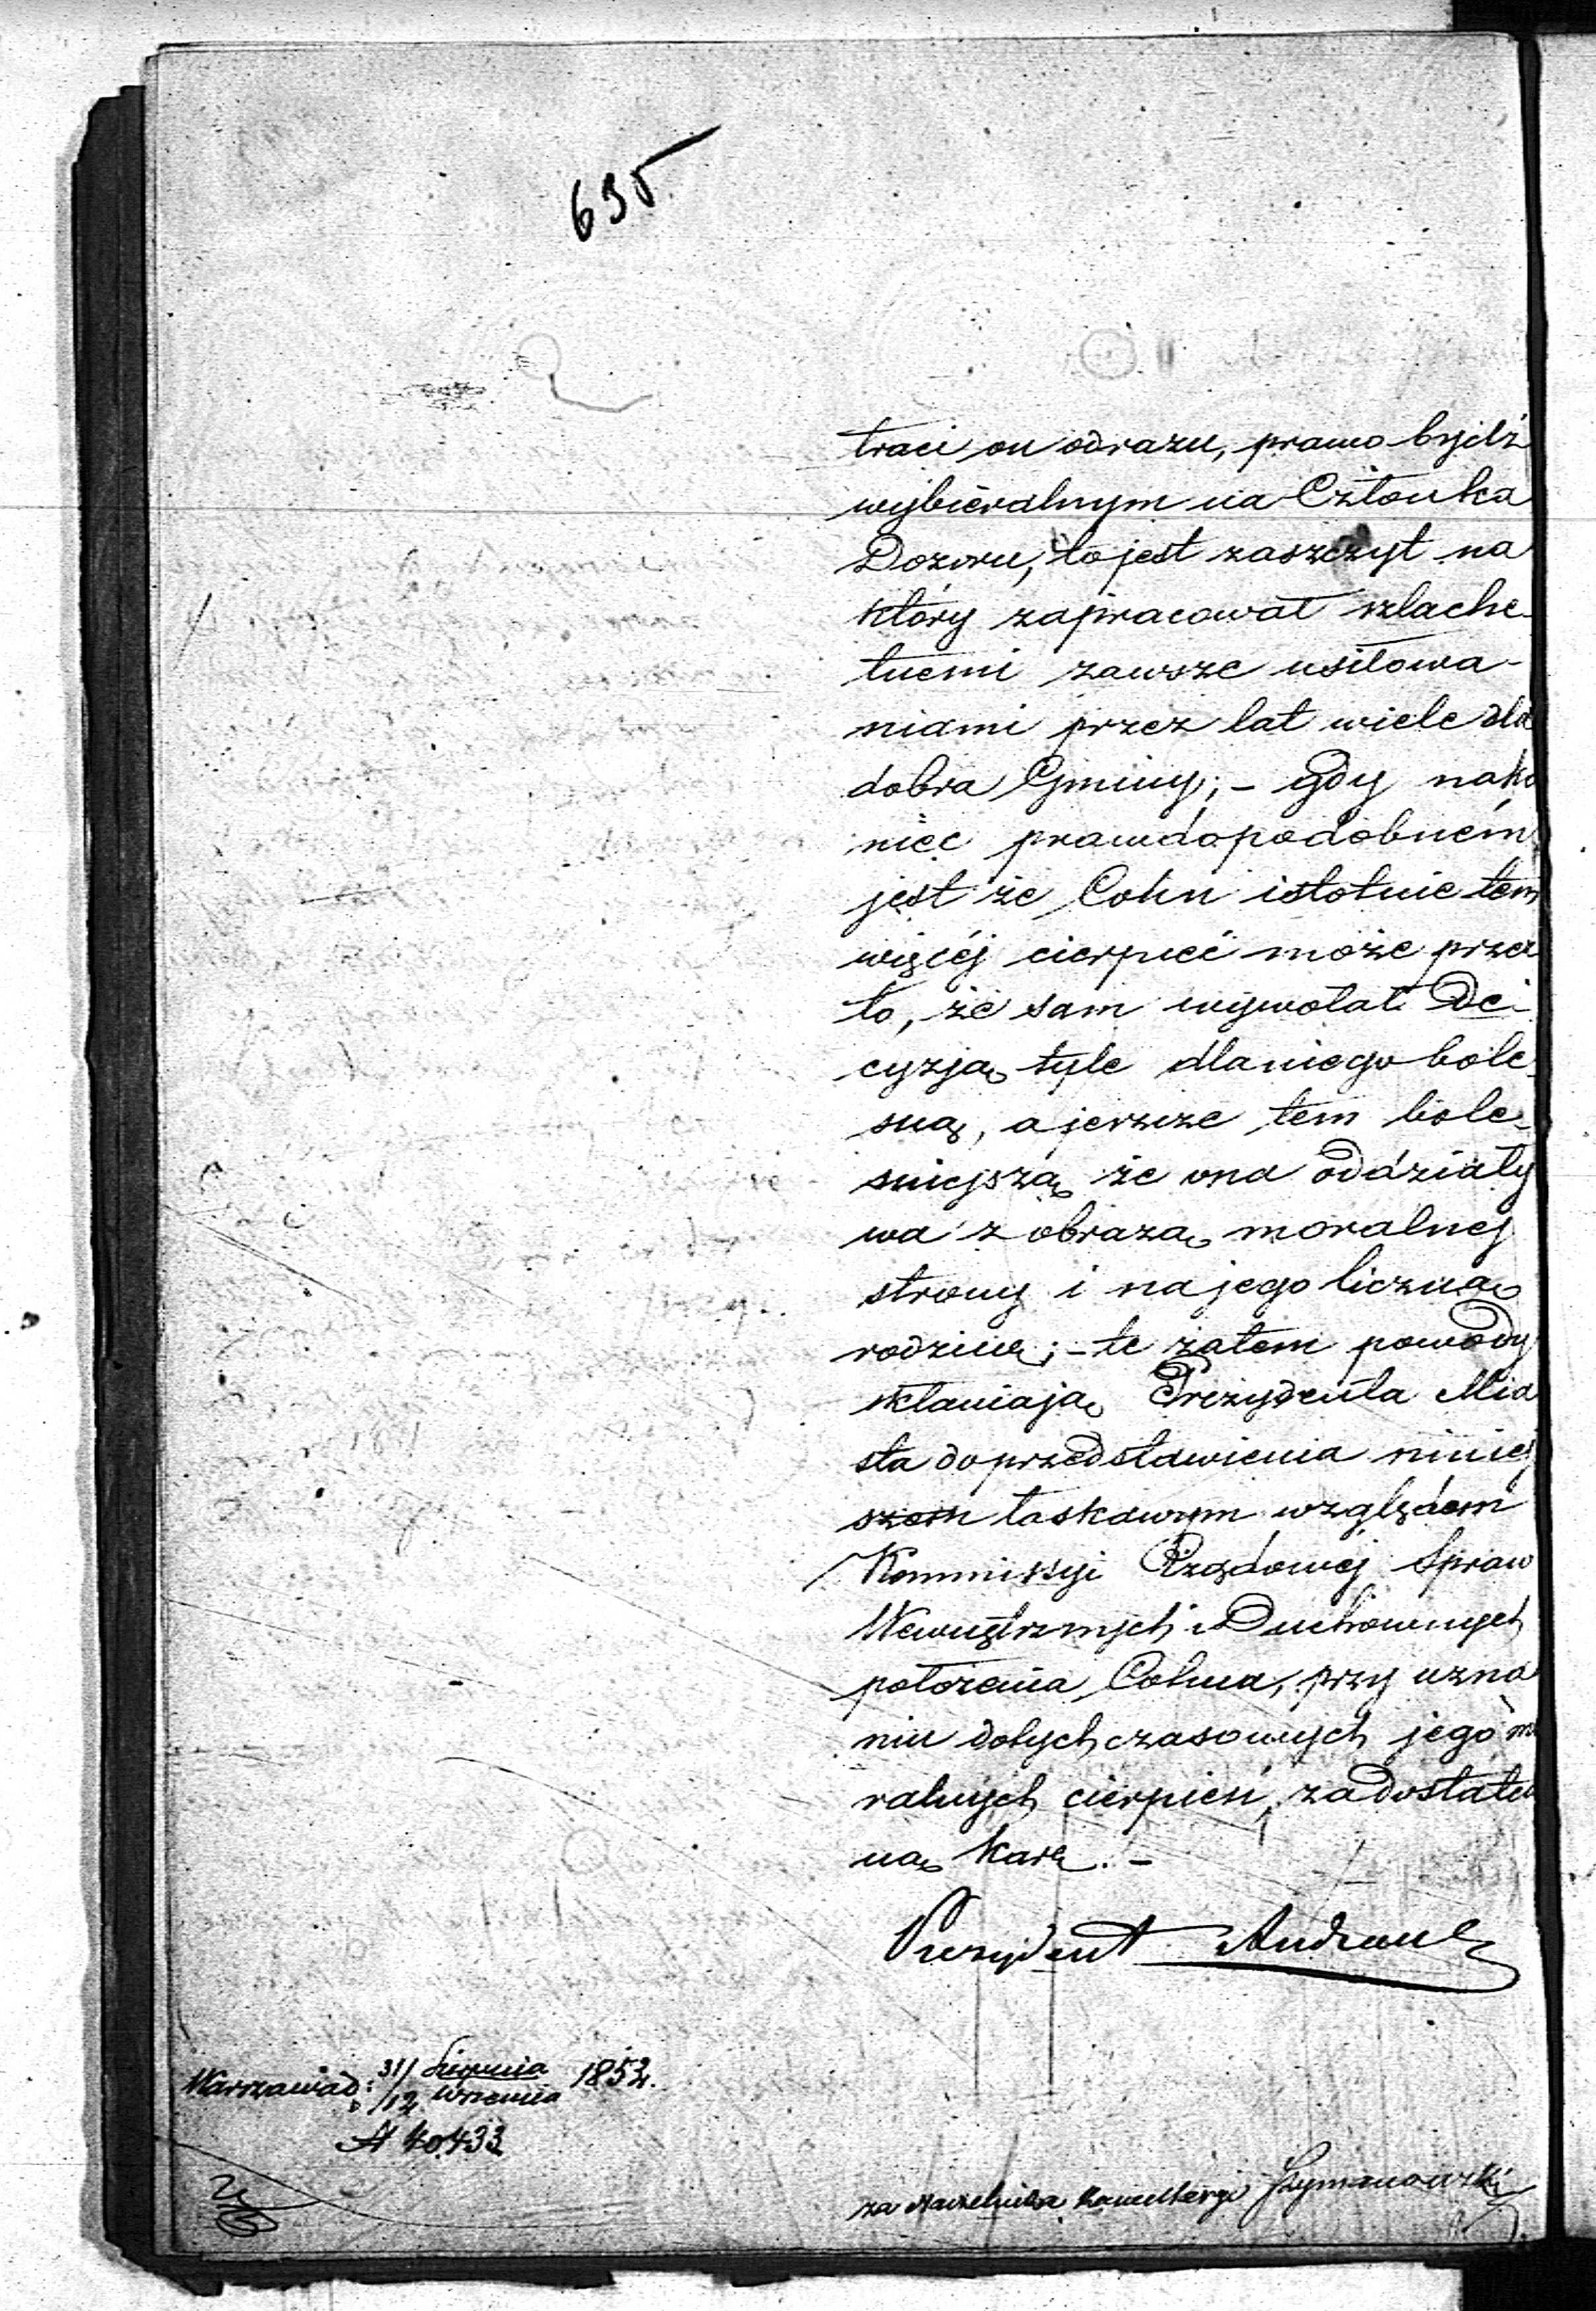 635
traci on odrazu, prawo bydź
wybieralnym na Członka
Dozoru, to jest zaszczyt na
który zapracował szlache-
tnemi zawsze usiłowa-
niami przez lat wiele dla
dobra Gminy; – gdy nako
niec prawdopodobném
jest że Cohn istotnie tem
więcéj cierpieć może przez
to, że sam wywołał De-
cyzją tyle dlaniego bole-
sną, a jeszcze tem bole-
śniejszą że ona oddziały
wa z obrazą moralnej
strony i na jego liczną
rodzinę; – te zatem powody
skłaniają Prezydenta Mia
sta do przedstawienia niniej
szem łaskawym względom
Kommissyi Rządowéj Spraw
Wewnętrznych i Duchownych
położenia Cohna, przy uzna
niu dotychczasowych jego mo
ralnych cierpień, za dostatecz
ną karę. –
Prezydent Andrault
Warszawa d: 31/12 Sierpnia Września 1852.
N 40433
za Naczelnika Kancellaryi Szymanowski